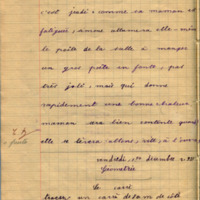 c'est jeudi ; comme sa maman est
fatiguée, Simone allumera elle-même
le poêle de la salle à manger
un gros poêle en fonte, pas
très joli, mais qui donne
rapidement une bonne chaleur
maman sera bien contente quand
elle se lèvera ; allons, vite, à l'
vendredi 1er décembre
Géométrie
Le carré
tracer un carré de de côté